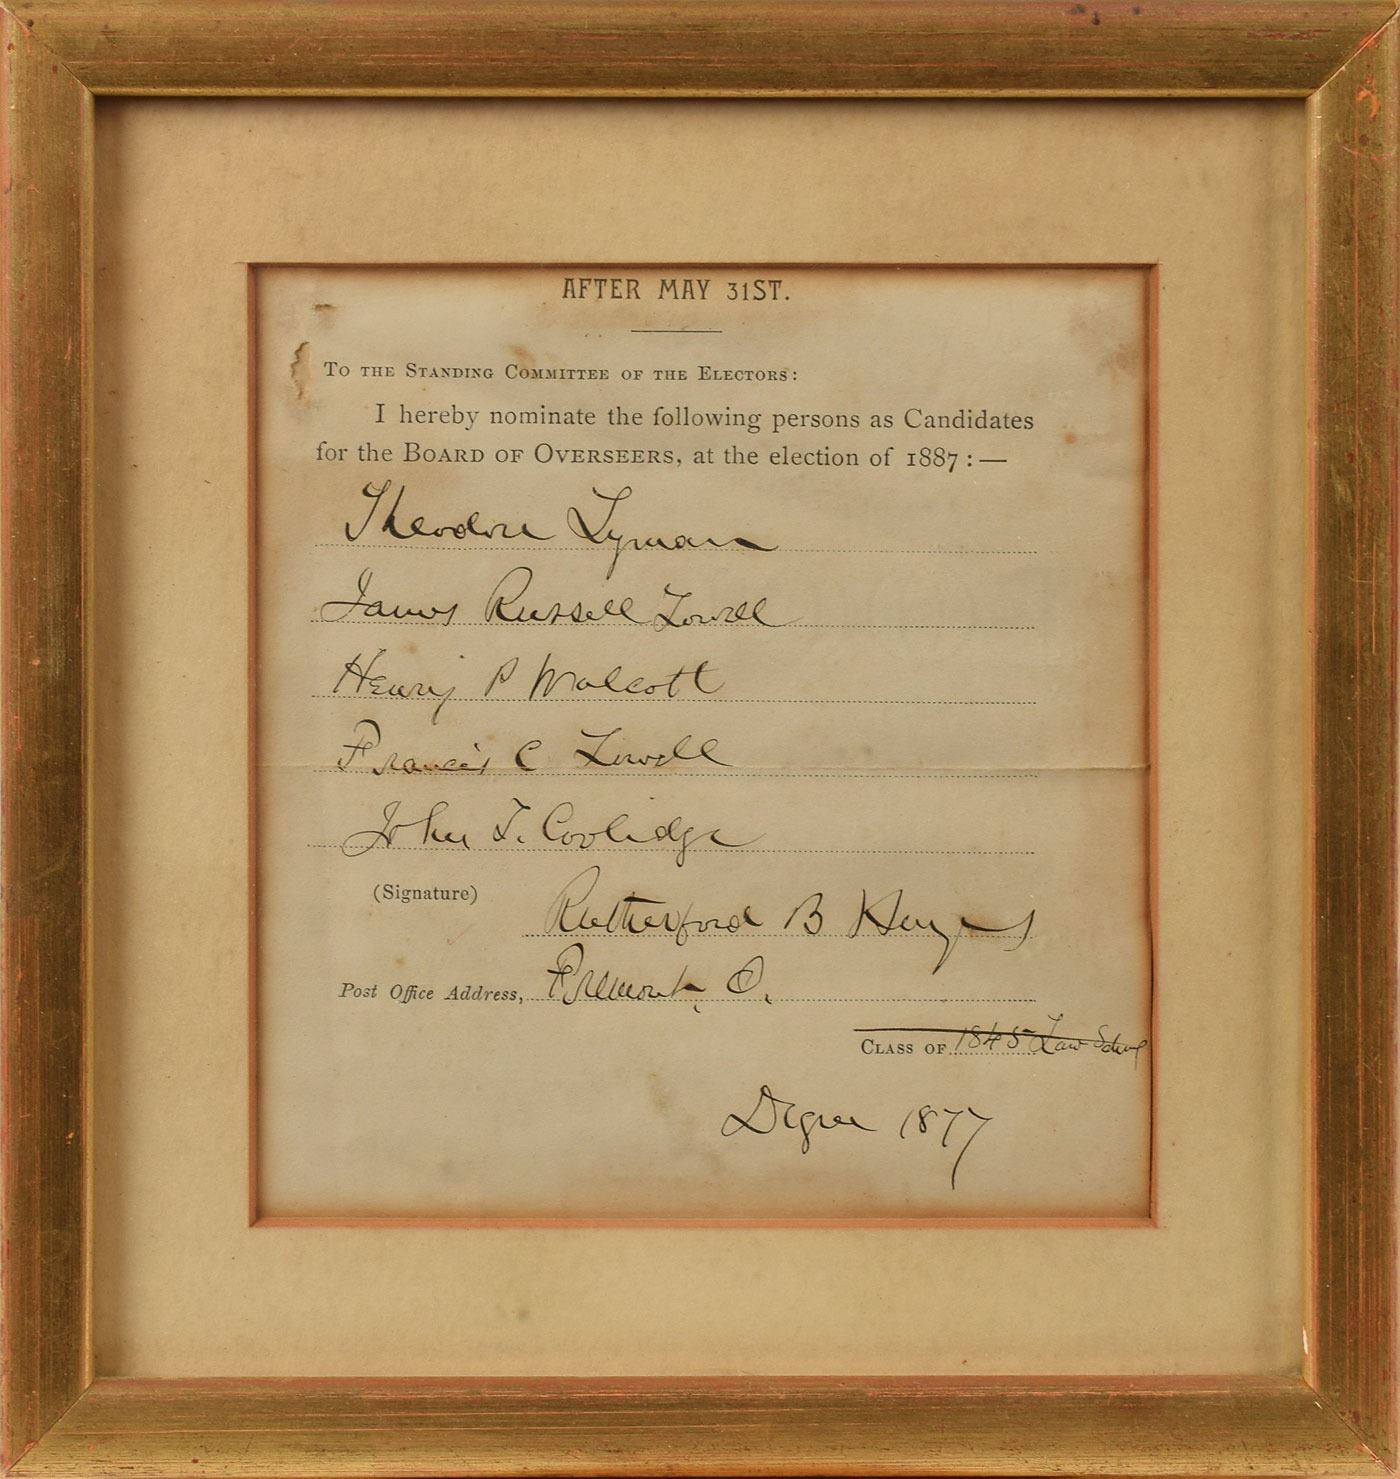 AFTER MAY 31ST.
To the Standing Committee of the Electors:
I hereby nominate the following persons as Candidates
for the Board of Overseers, at the election of 1887: —
Theodore Lyman
James Russell Lowell
Henry P Walcott
Francis C Lowell
John T. Coolidge
(Signature)
Rutherford B Hayes
Post Office Address, Fremont, O.
Class of 1845 Law School
Degree 1877